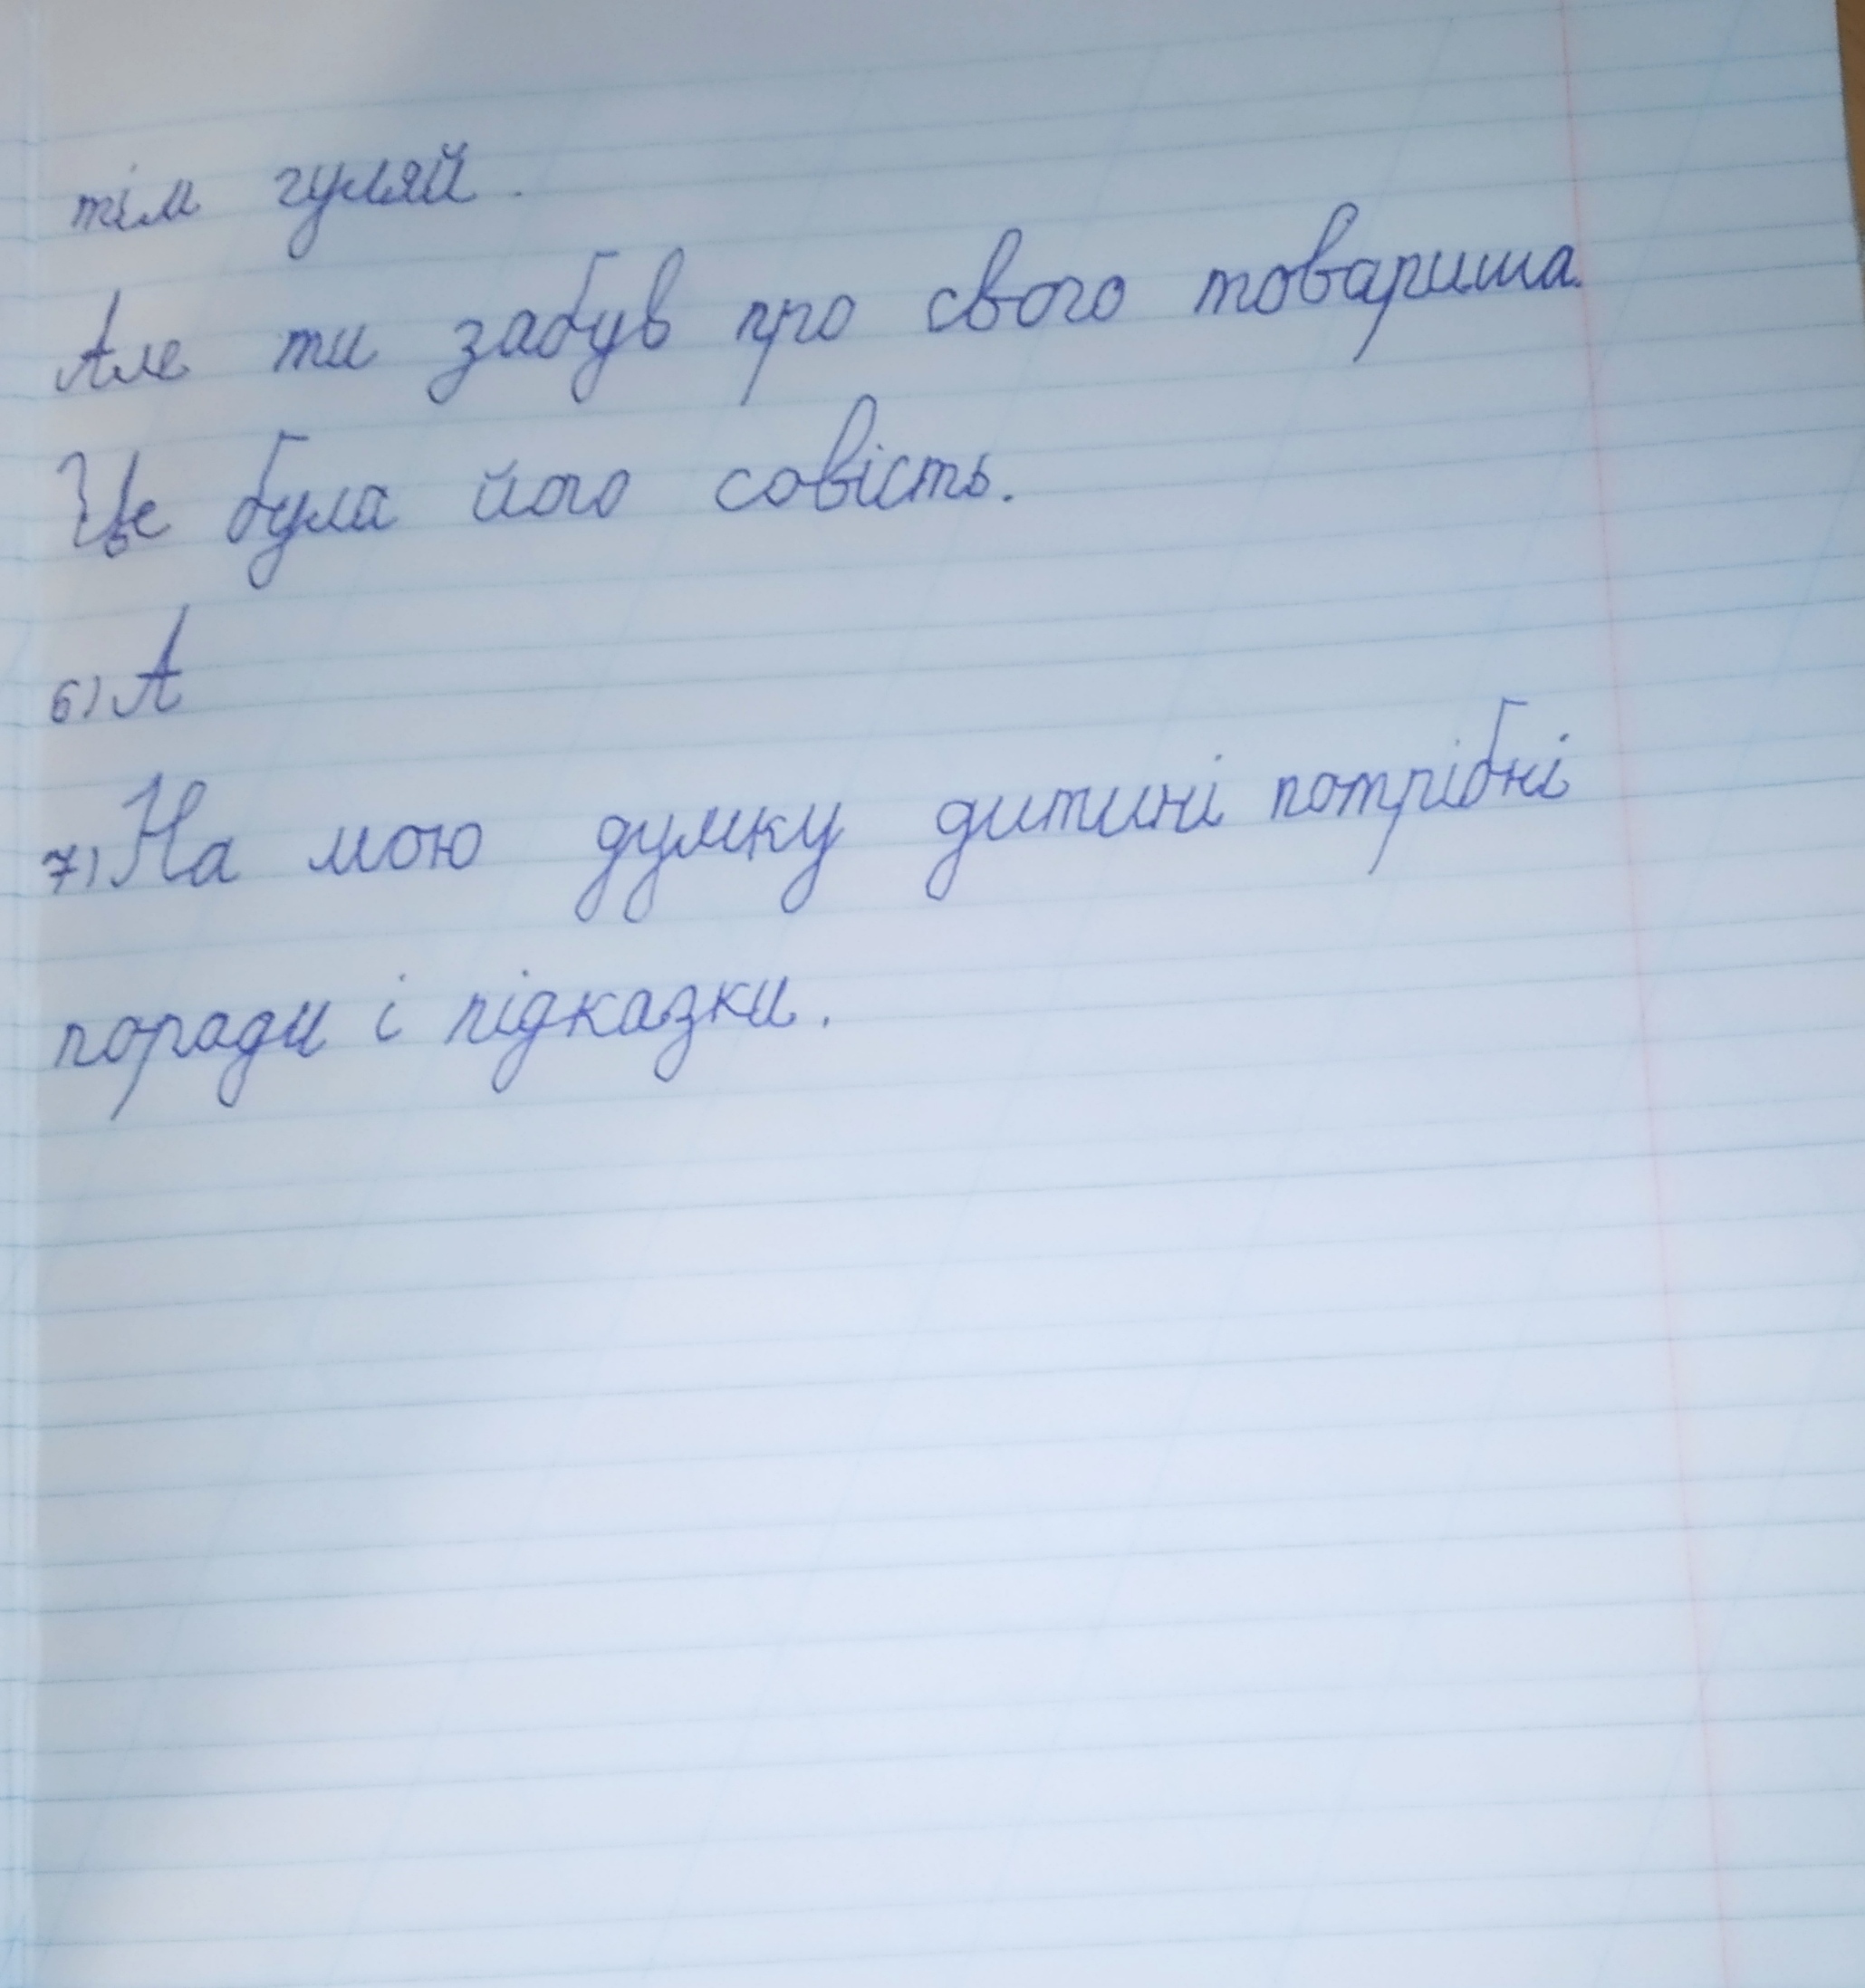 тім гуляй.
Але ти забув про свого товариша.
Це була його совість.
6) А
7) На мою думку дитині потрібні
поради і підказки.